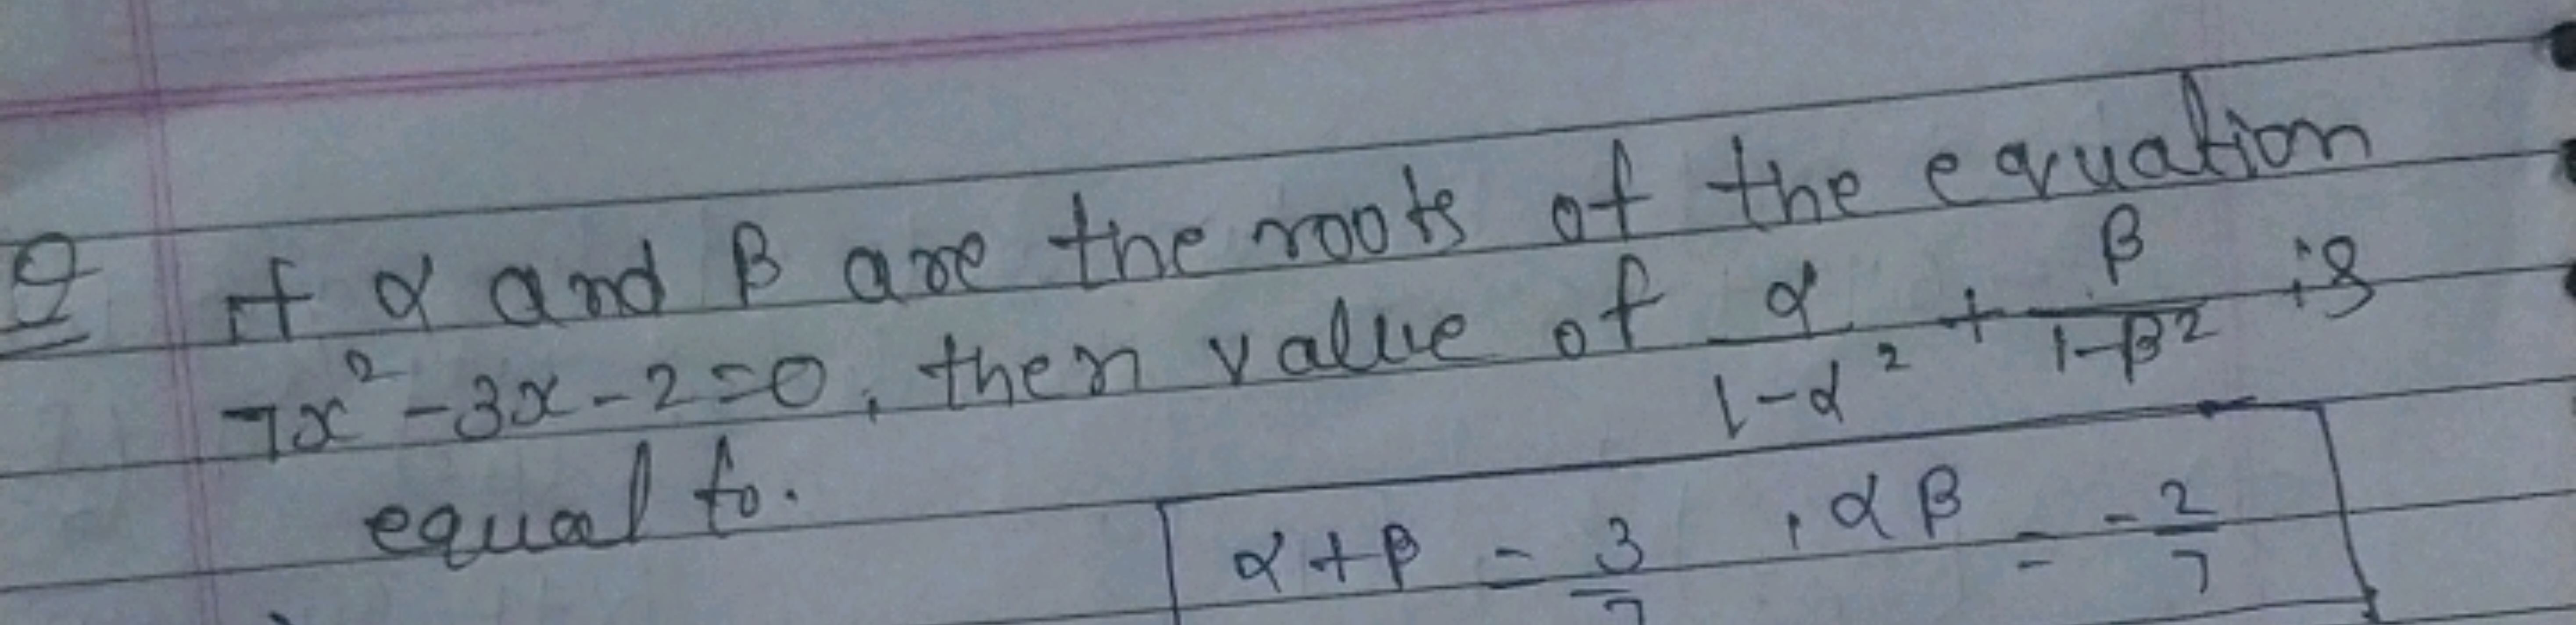 Q If α and β are the roots of the equation
7x² - 3x - 2 = 0, then value of α/(1-α²) + β/(1-β²) is
equal to.
α + β = 3/7 , αβ = -2/7